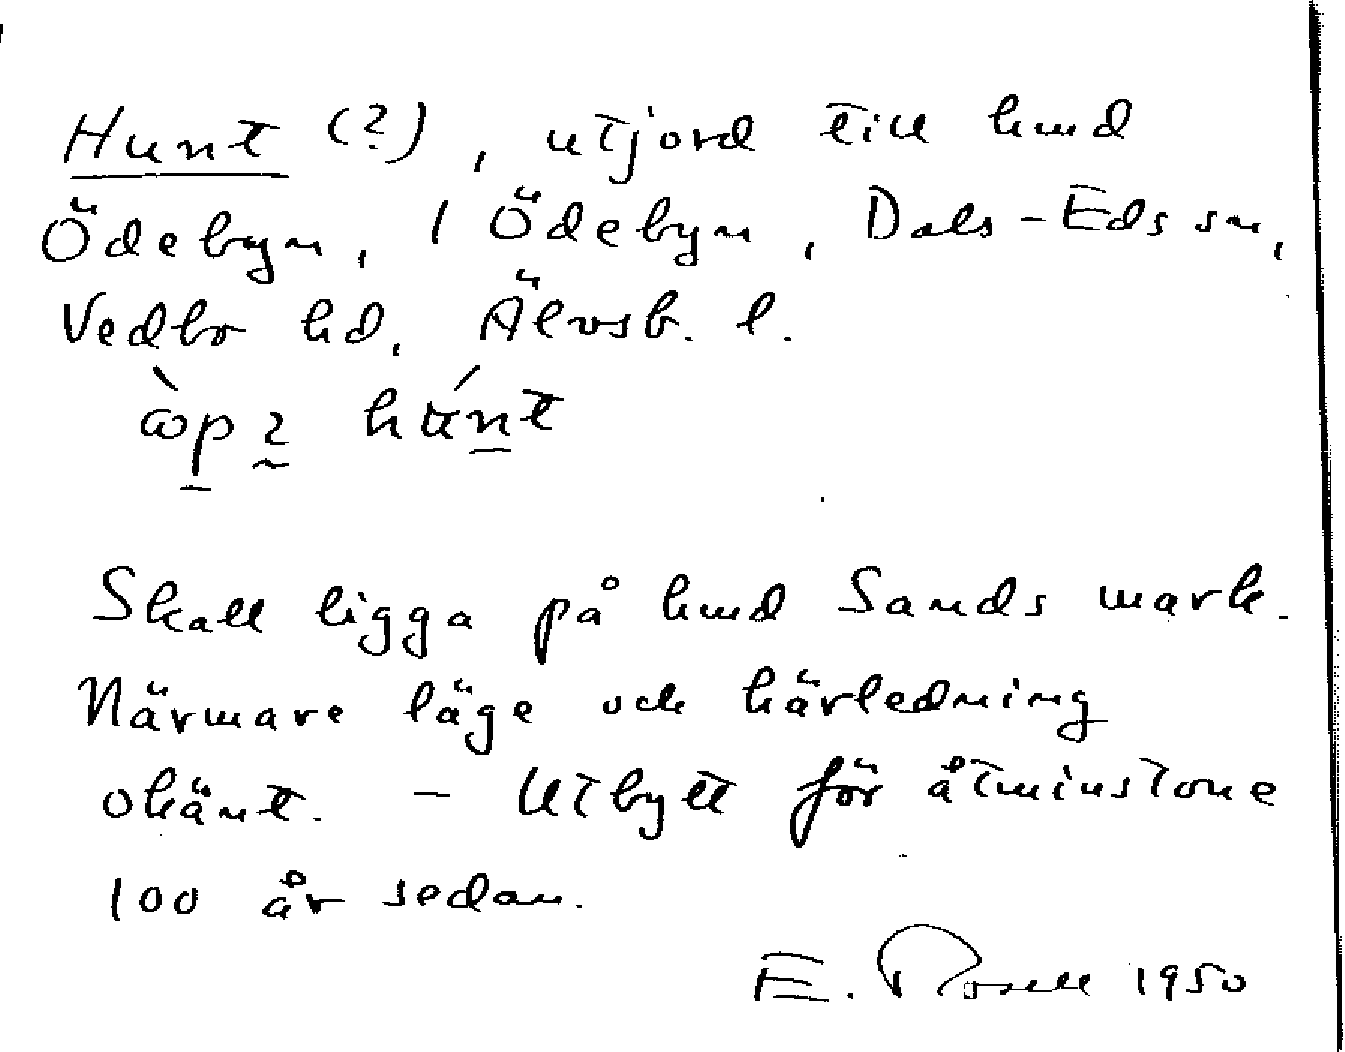 Hunt (?), utjord till hmd
Ödebyn, 1 Ödebyn, Dals-Eds sn,
Vedbo hd, Älvsb. l.
húnt
Skall ligga på hmd Sands mark.
Närmare läge och härledning
okänt. - Utbytt för åtminstone
100 år sedan.
E. Rosell 1950